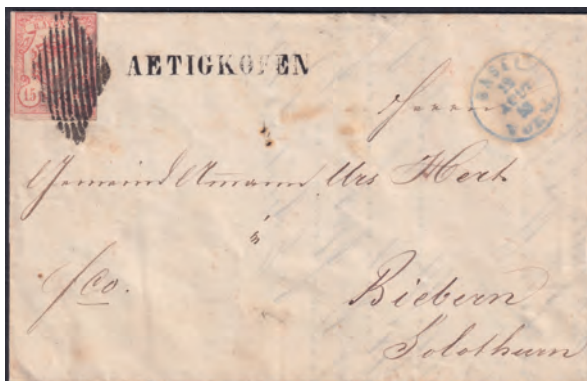 15
AETIGKOFEN
BASEL
Herrn
Gemeind Ammann Urs
à
fco.
Biebern
Solothurn